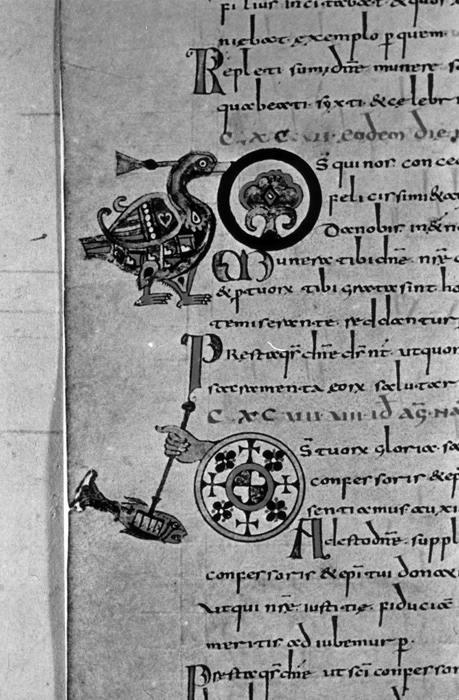 filius incitabat & quos
niebat exemplo p quem
Repleti sum; dñe munere s
quabeati syxti & celebr
CXCVII eadem die
D̄s qui nos conced
felicissimi & a
Da nobis in
Munera tibi dñe nrę
& p tuorx tibi grata sint ho
te miserante reddantur
Presta qs dñe ds nt ut quor
sacramenta eorx salutar
CXCVIII VIIII id ag
D̄s tuorx gloria s
confessoris & ep
sentiamus auxi
Adesto dñe suppl
confessoris & epi tui dona
ut qui nrę iustitię fiduciā
meritis adiubemur p
Presta qs dñe ut sci confessor